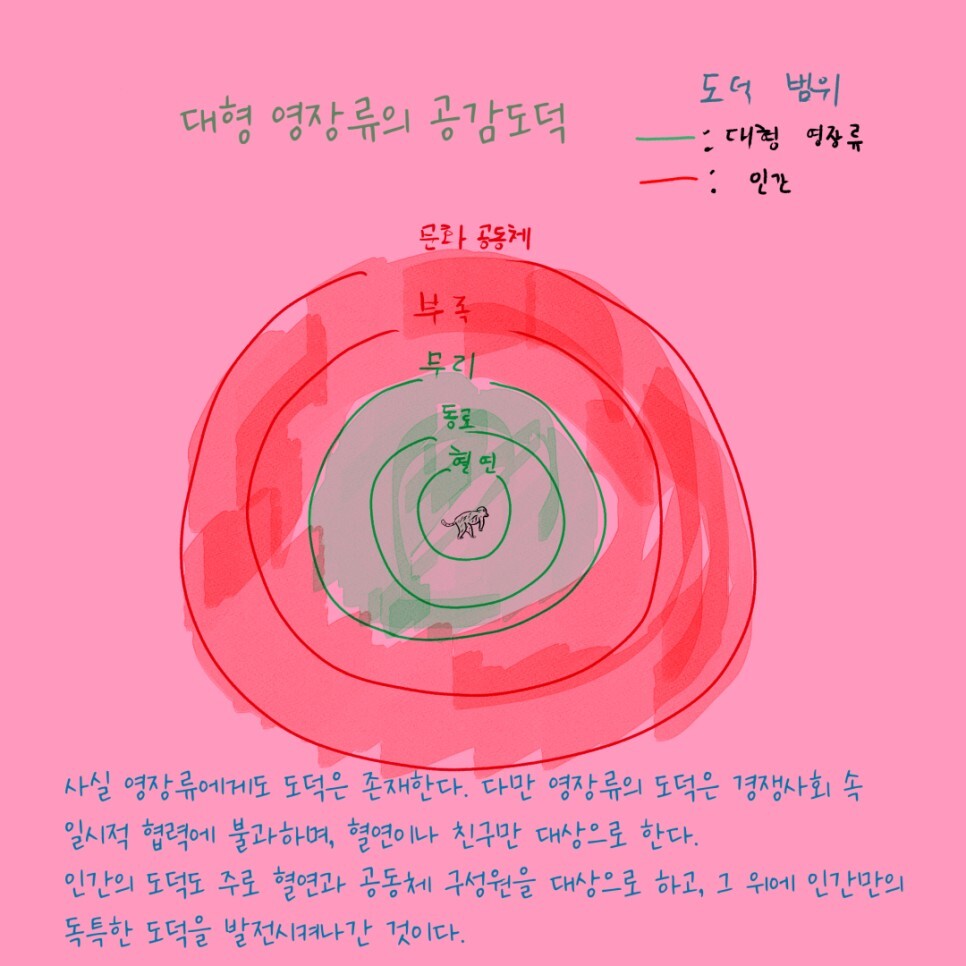 대형 영장류의 공감도덕
도덕 범위
: 대형 영장류
: 인간
문화 공동체
부족
무리
동료
혈연
사실 영장류에게도 도덕은 존재한다. 다만 영장류의 도덕은 경쟁사회 속
일시적 협력에 불과하며, 혈연이나 친구만 대상으로 한다.
인간의 도덕도 주로 혈연과 공동체 구성원을 대상으로 하고, 그 위에 인간만의
독특한 도덕을 발전시켜나간 것이다.